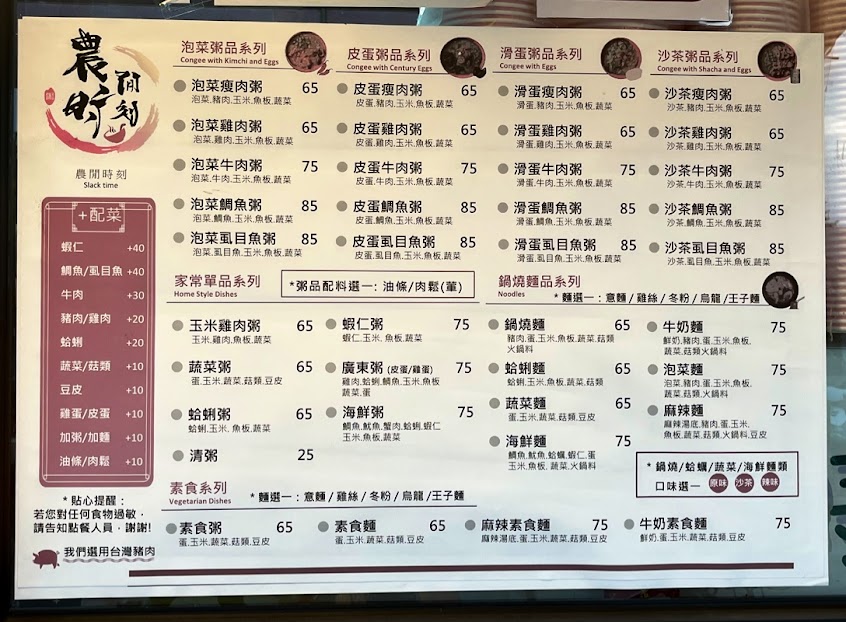 農閒
時刻
農閒時刻
Slack time
+配菜
蝦仁 +40
鯛魚/虱目魚 +40
牛肉 +30
豬肉/雞肉 +20
蛤蜊 +20
蔬菜/菇類 +10
豆皮 +10
雞蛋/皮蛋 +10
加粥/加麵 +10
油條/肉鬆 +10
* 貼心提醒：
若您對任何食物過敏，
請告知點餐人員，謝謝!
我們選用台灣豬肉
泡菜粥品系列
Congee with Kimchi and Eggs
泡菜瘦肉粥 65
泡菜.豬肉.玉米.魚板.蔬菜
泡菜雞肉粥 65
泡菜.雞肉.玉米.魚板.蔬菜
泡菜牛肉粥 75
泡菜.牛肉.玉米.魚板.蔬菜
泡菜鯛魚粥 85
泡菜.鯛魚.玉米.魚板.蔬菜
泡菜虱目魚粥 85
泡菜.虱目魚.玉米.魚板.蔬菜
皮蛋粥品系列
Congee with Century Eggs
皮蛋瘦肉粥 65
皮蛋.豬肉.玉米.魚板.蔬菜
皮蛋雞肉粥 65
皮蛋.雞肉.玉米.魚板.蔬菜
皮蛋牛肉粥 75
皮蛋.牛肉.玉米.魚板.蔬菜
皮蛋鯛魚粥 85
皮蛋.鯛魚.玉米.魚板.蔬菜
皮蛋虱目魚粥 85
皮蛋.虱目魚.玉米.魚板.蔬菜
滑蛋粥品系列
Congee with Eggs
滑蛋瘦肉粥 65
滑蛋.豬肉.玉米.魚板.蔬菜
滑蛋雞肉粥 65
滑蛋.雞肉.玉米.魚板.蔬菜
滑蛋牛肉粥 75
滑蛋.牛肉.玉米.魚板.蔬菜
滑蛋鯛魚粥 85
滑蛋.鯛魚.玉米.魚板.蔬菜
滑蛋虱目魚粥 85
滑蛋.虱目魚.玉米.魚板.蔬菜
沙茶粥品系列
Congee with Shacha and Eggs
沙茶瘦肉粥 65
沙茶.豬肉.玉米.魚板.蔬菜
沙茶雞肉粥 65
沙茶.雞肉.玉米.魚板.蔬菜
沙茶牛肉粥 75
沙茶.牛肉.玉米.魚板.蔬菜
沙茶鯛魚粥 85
沙茶.鯛魚.玉米.魚板.蔬菜
沙茶虱目魚粥 85
沙茶.虱目魚.玉米.魚板.蔬菜
家常單品系列
Home Style Dishes
*粥品配料選一: 油條/肉鬆(葷)
玉米雞肉粥 65
玉米.雞肉.魚板.蔬菜
蔬菜粥 65
蛋.玉米.蔬菜.菇類.豆皮
蛤蜊粥 65
蛤蜊.玉米.魚板.蔬菜
清粥 25
蝦仁粥 75
蝦仁.玉米.魚板.蔬菜
廣東粥 (皮蛋/雞蛋) 75
雞肉.蛤蜊.鯛魚.玉米.魚板
蔬菜.蛋
海鮮粥 75
鯛魚.魷魚.蟹肉.蛤蜊.蝦仁
玉米.魚板.蔬菜
鍋燒麵品系列
Noodles
* 麵選一：意麵 / 雞絲 / 冬粉 / 烏龍 /王子麵
鍋燒麵 65
豬肉.蛋.玉米.魚板.蔬菜.菇類
火鍋料
蛤蜊麵 65
蛤蜊.玉米.魚板.蔬菜.菇類
蔬菜麵 65
蛋.玉米.蔬菜.菇類.豆皮
海鮮麵 75
鯛魚.魷魚.蛤蠣.蝦仁.蛋
玉米.魚板.蔬菜.火鍋料
牛奶麵 75
鮮奶.豬肉.蛋.玉米.魚板.
蔬菜.菇類.火鍋料
泡菜麵 75
泡菜.豬肉.蛋.玉米.魚板.
蔬菜.菇類.火鍋料
麻辣麵 75
麻辣湯底.豬肉.蛋.玉米.
魚板.蔬菜.菇類.火鍋料.豆皮
* 鍋燒/蛤蠣/蔬菜/海鮮麵類
口味選一 原味 沙茶 辣味
素食系列
Vegetarian Dishes
* 麵選一：意麵 / 雞絲 / 冬粉 / 烏龍 /王子麵
素食粥 65
蛋.玉米.蔬菜.菇類.豆皮
素食麵 65
蛋.玉米.蔬菜.菇類.豆皮
麻辣素食麵 75
麻辣湯底.蛋.玉米.蔬菜.菇類.豆皮
牛奶素食麵 75
鮮奶.蛋.玉米.蔬菜.菇類.豆皮